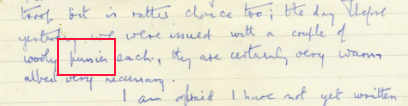 troop but is rather choice too; the day before
yesterday we were issued with a couple of
wooly each, they are certainly very warm
albeit very necessary.
I am afraid I have not yet written